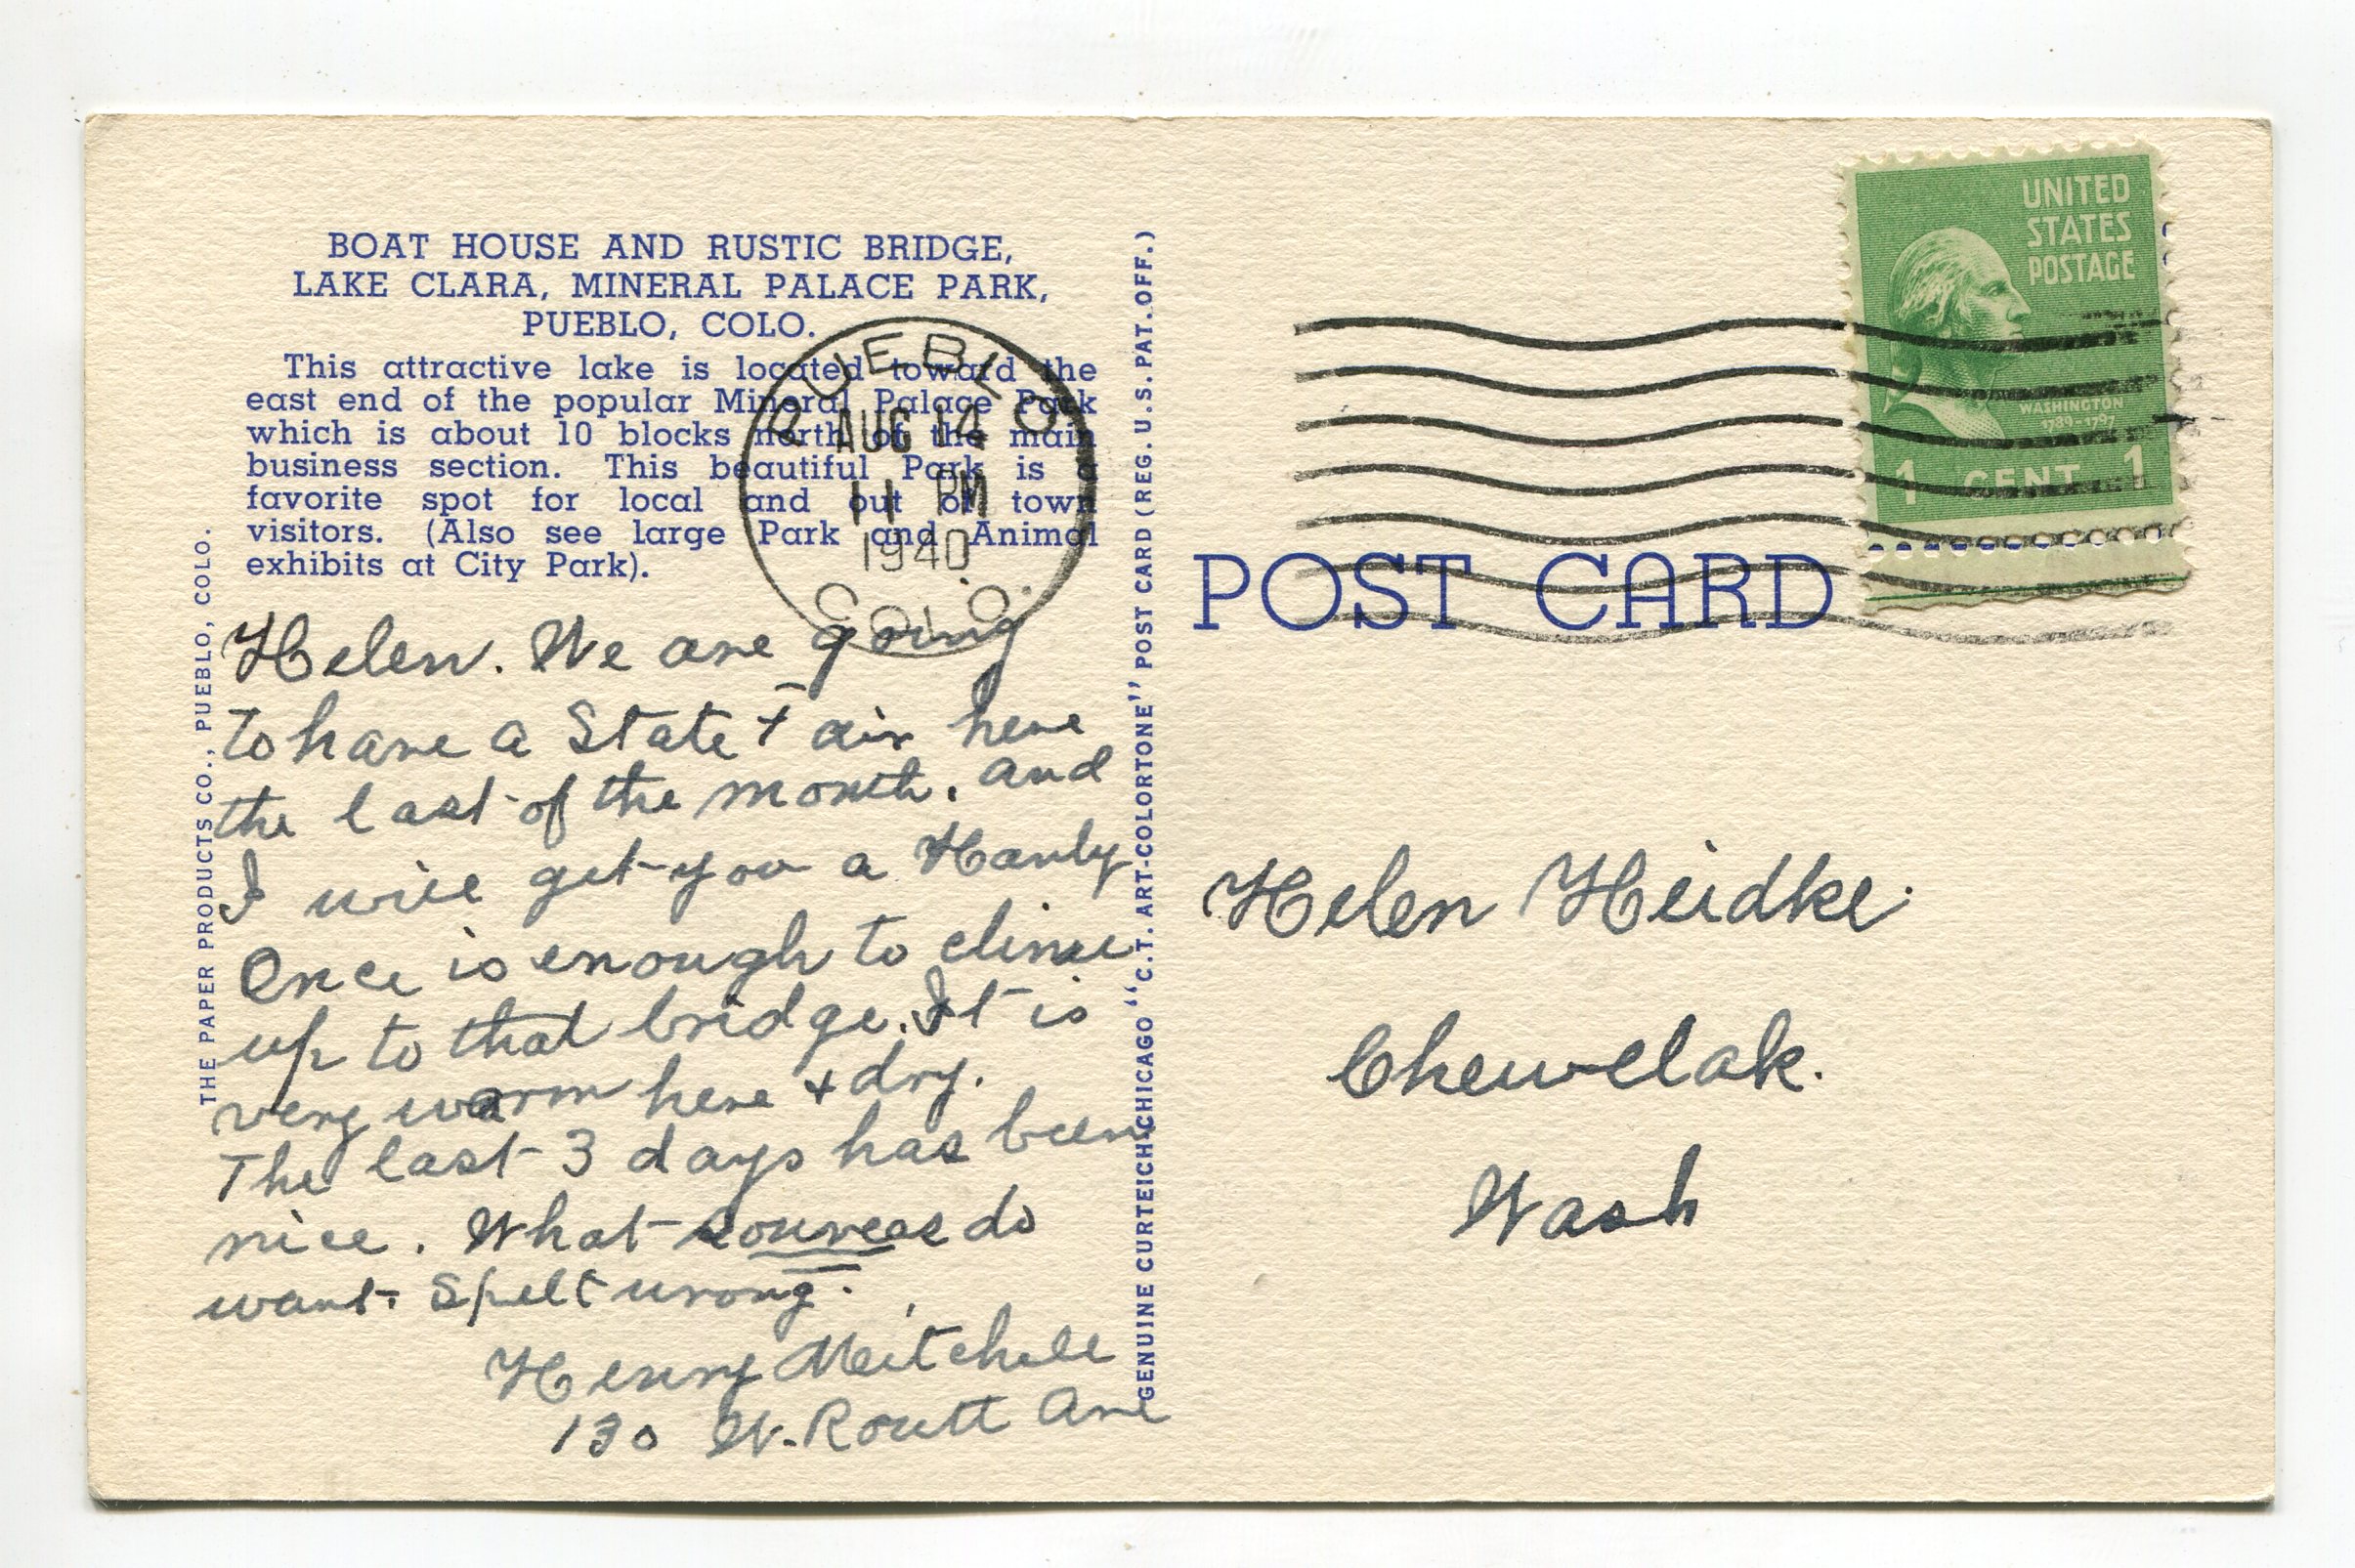 BOAT HOUSE AND RUSTIC BRIDGE,
LAKE CLARA, MINERAL PALACE PARK,
PUEBLO, COLO.
This attractive lake is located toward the
east end of the popular Mineral Palace Park
which is about 10 blocks north of the main
business section. This beautiful Park is a
favorite spot for local and out of town
visitors. (Also see large Park and Animal
exhibits at City Park).
PUEBLO
AUG 14
11 PM
1940
COLO.
Helen. We are going
to have a State Fair here
the last of the month. and
I will get you a
Once is enough to
up to that bridge. It is
very warm here + dry.
The last 3 days has been
nice. What do
want. Spelt wrong.
Henry Mitchell
130 W. Routt Ave
THE PAPER PRODUCTS CO., PUEBLO, COLO.
GENUINE CURTEICH-CHICAGO "C.T. ART-COLORTONE" POST CARD (REG. U.S. PAT. OFF.)
UNITED
STATES
POSTAGE
WASHINGTON
1789-1797
1 CENT 1
POST CARD
Helen Heidke
Chewelak.
Wash